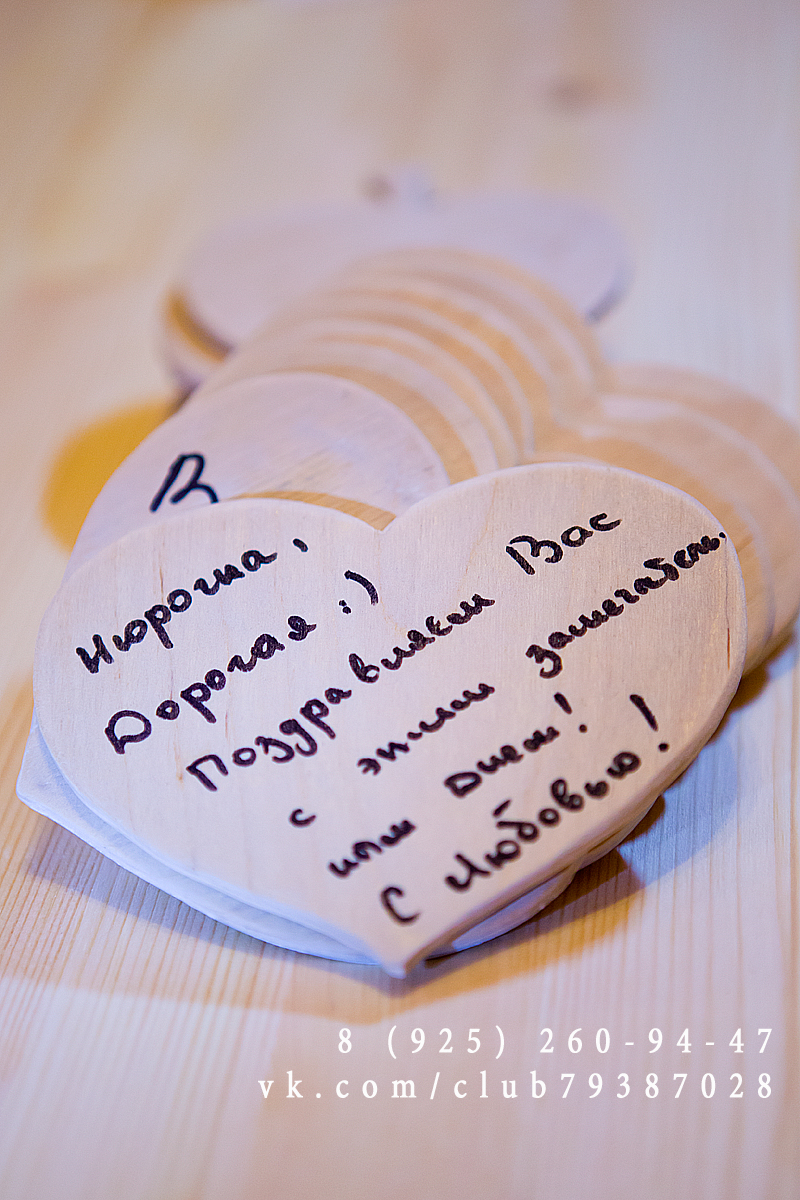 В
Нюрочка,
Дорогая :)
Поздравляем Вас
с этим замечатель-
ным Днем!
С Любовью!
8 (925) 260-94-47
vk.com/club79387028